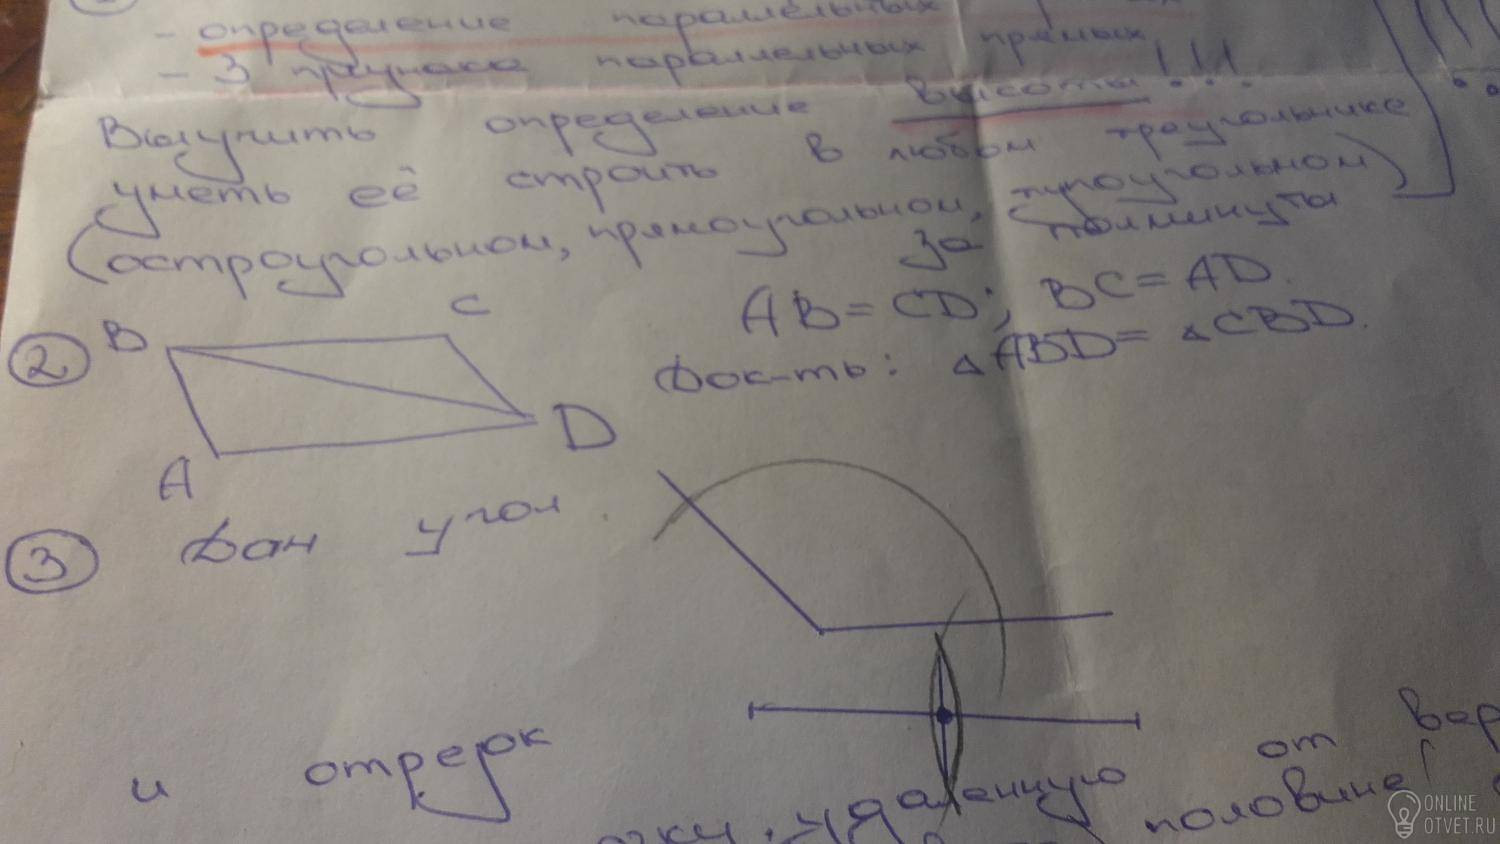 - определение параллельных
- 3 признака параллельных прямых
Выучить определение высоты!!!
уметь её строить в любом треугольнике
(остроугольном, прямоугольном, тупоугольном)
за полминуты
B C
AB = CD; BC = AD.
2 Док-ть: △ABD = △CBD.
A D
3 Дан угол
и отрезок
удаленную от
половине
ONLINE
OTVET.RU